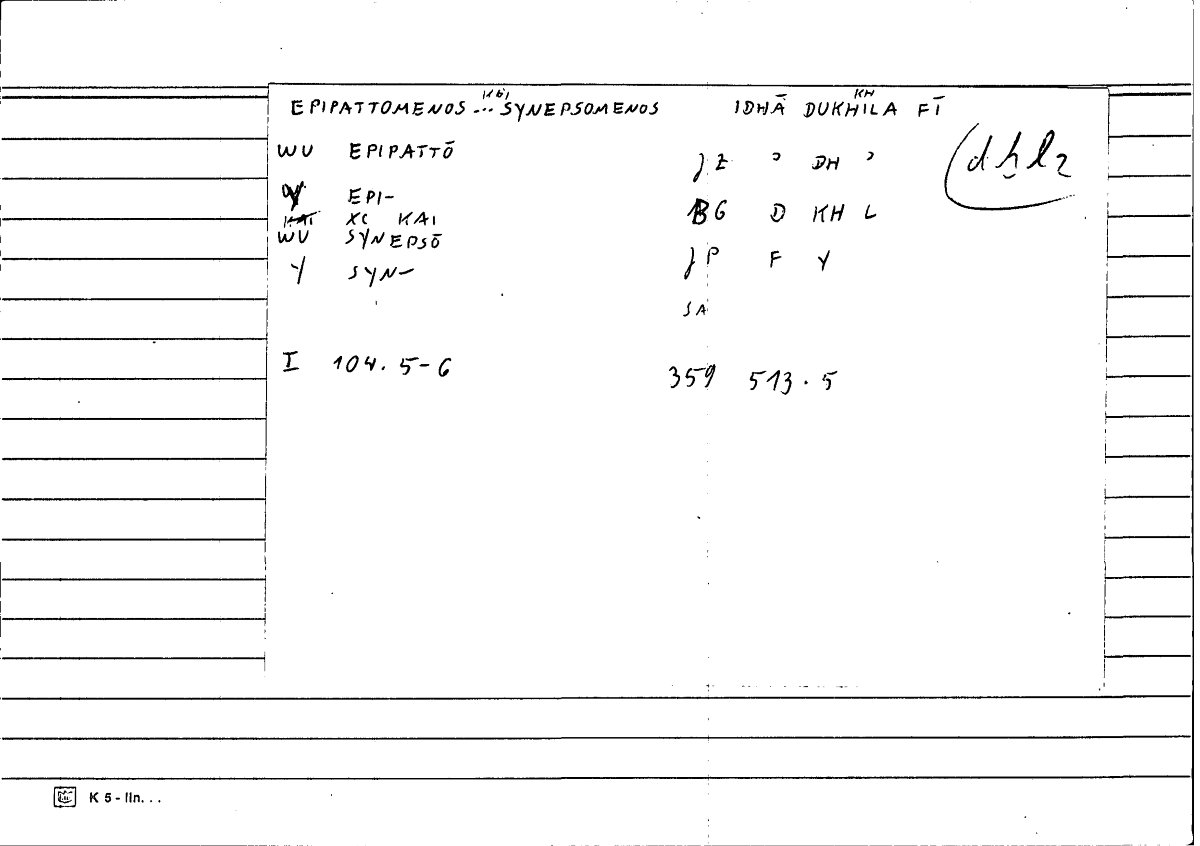 EPIPATTOMENOS ... KAI SYNEPSOMENOS IDHĀ DUKHILA FĪ
KH
WU EPIPATTŌ JZ ʾ DH ʾ
(dḫl2
Y EPI-
XC KAI BG D KH L
WU SYNEPSŌ
Y SYN- JP F Y
SA
I 104.5-6 359 513.5
K 5 - lin. . .